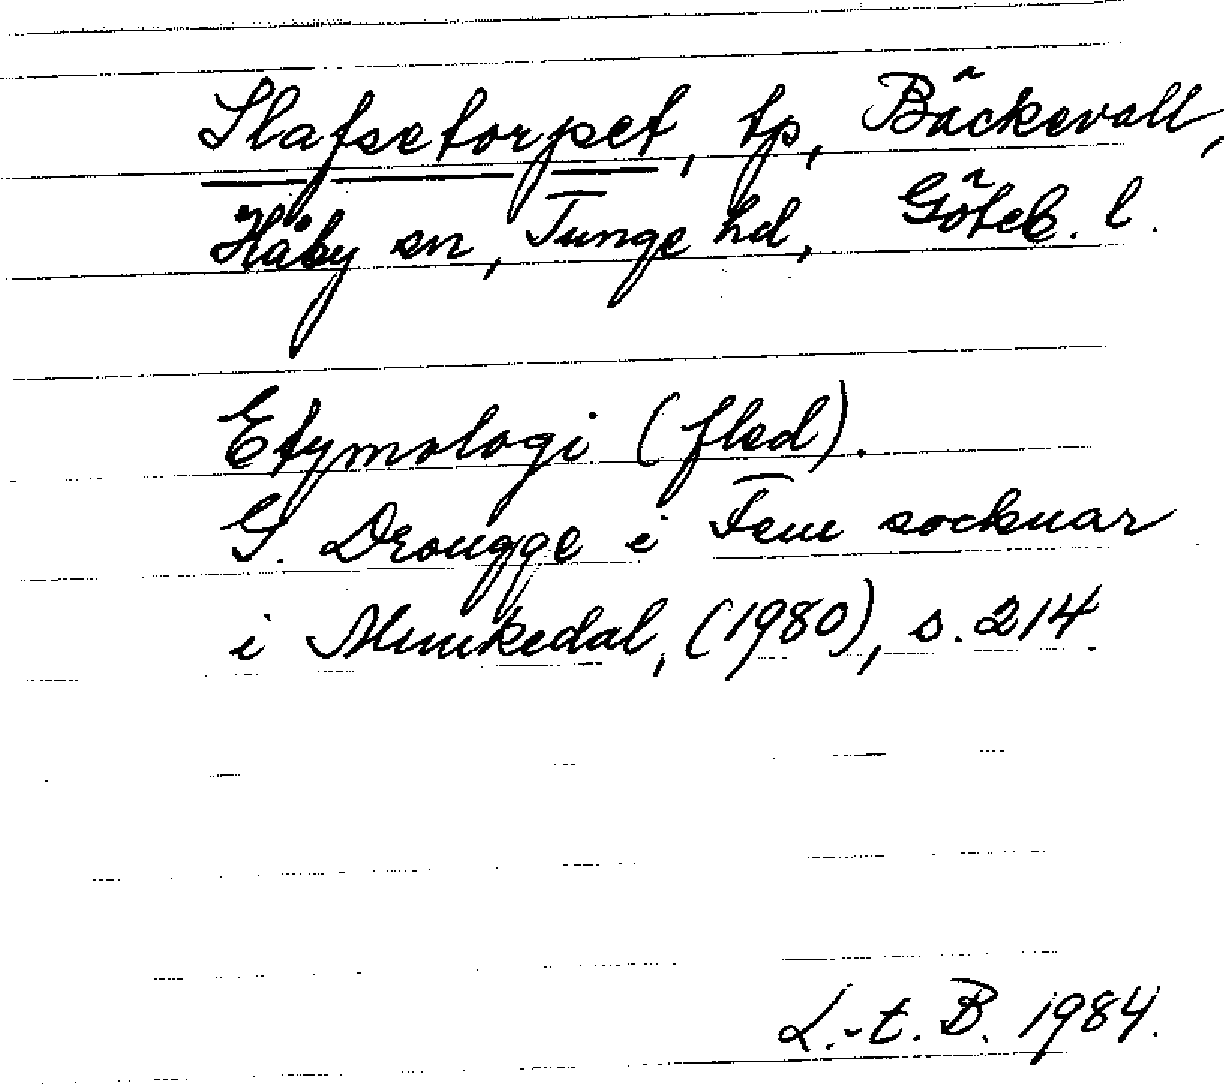 Slafsetorpet, tp, Bäckevall,
Håby sn, Tunge hd, Göteb. l.
Etymologi (fled).
G. Drougge i Fem socknar
i Munkedal, (1980), s. 214.
L.-t. B. 1984.